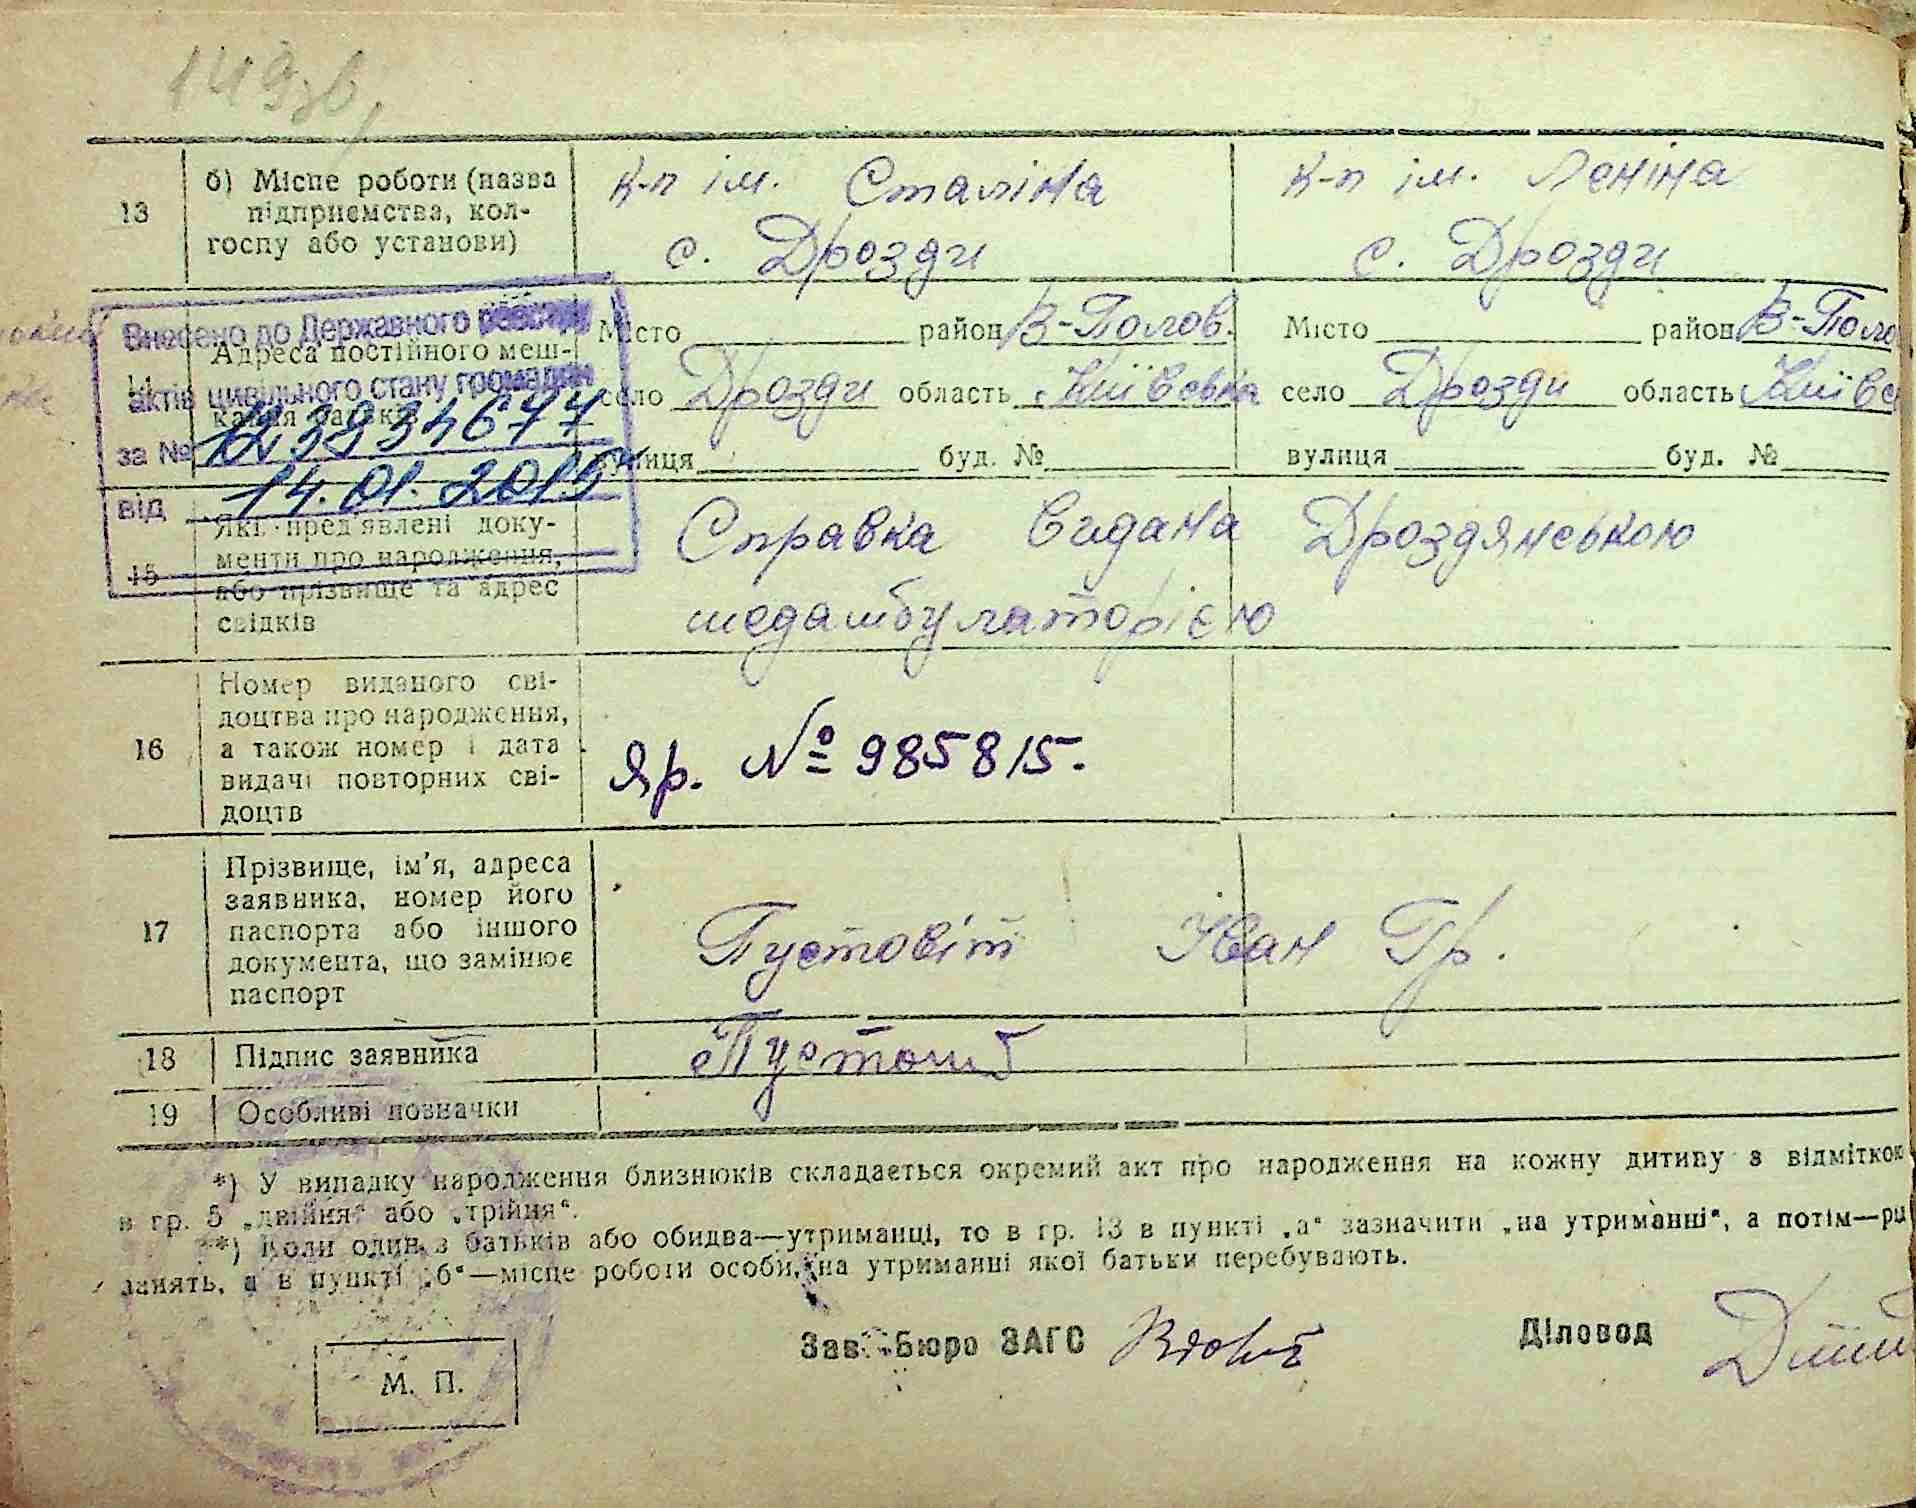 149зв
13
б) Місце роботи (назва
підприємства, кол-
госпу або установи)
к-п ім. Сталіна
с. Дрозди
к-п ім. Леніна
с. Дрозди
Внесено до Державного реєстру
актів цивільного стану громадян
за №
від 14.01.2015
Адреса постійного меш-
Місто район В-Полов.
село Дрозди область Київська
вулиця буд. №
Місто район В-Поло
село Дрозди область Київс
вулиця буд. №
15
Які пред'явлені доку-
менти про народження,
або прізвище та адрес
свідків
Справка видана Дроздянською
медамбулаторією
16
Номер виданого сві-
доцтва про народження,
а також номер і дата
видачі повторних сві-
доцтв
Яр. № 985815.
17
Прізвище, ім'я, адреса
заявника, номер його
паспорта або іншого
документа, що замінює
паспорт
Пустовіт Іван Гр.
18
Підпис заявника
19
Особливі позначки
*) У випадку народження близнюків складається окремий акт про народження на кожну дитину з відміткою
в гр. 5 „двійня“ або „трійня“.
**) Коли один з батьків або обидва—утриманці, то в гр. 13 в пункті „а“ зазначити „на утриманні“, а потім—рі
занять, а в пункті „б“—місце роботи особи, на утриманні якої батьки перебувають.
Зав. Бюро ЗАГС
Діловод
М. П.